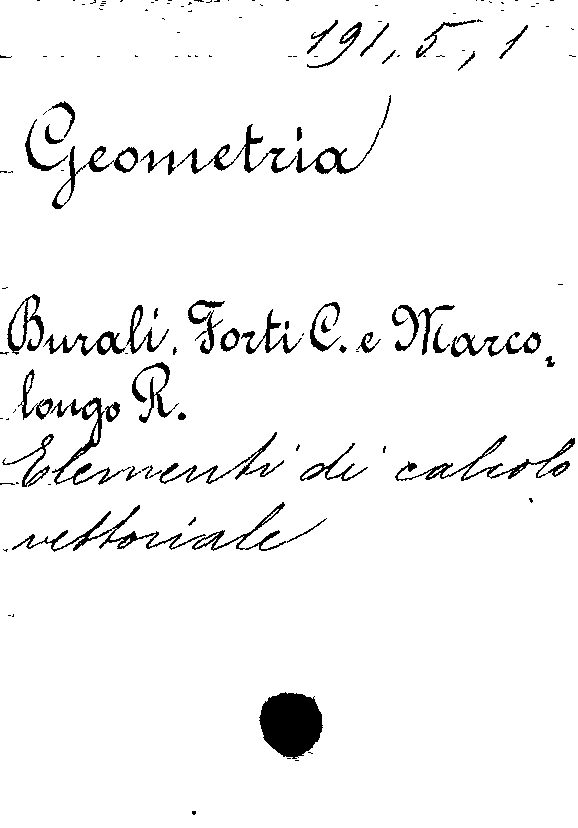 191, 5, 1
Geometria
Burali. Forti C. e Marco-
longo R.
Elementi di calcolo
vettoriale